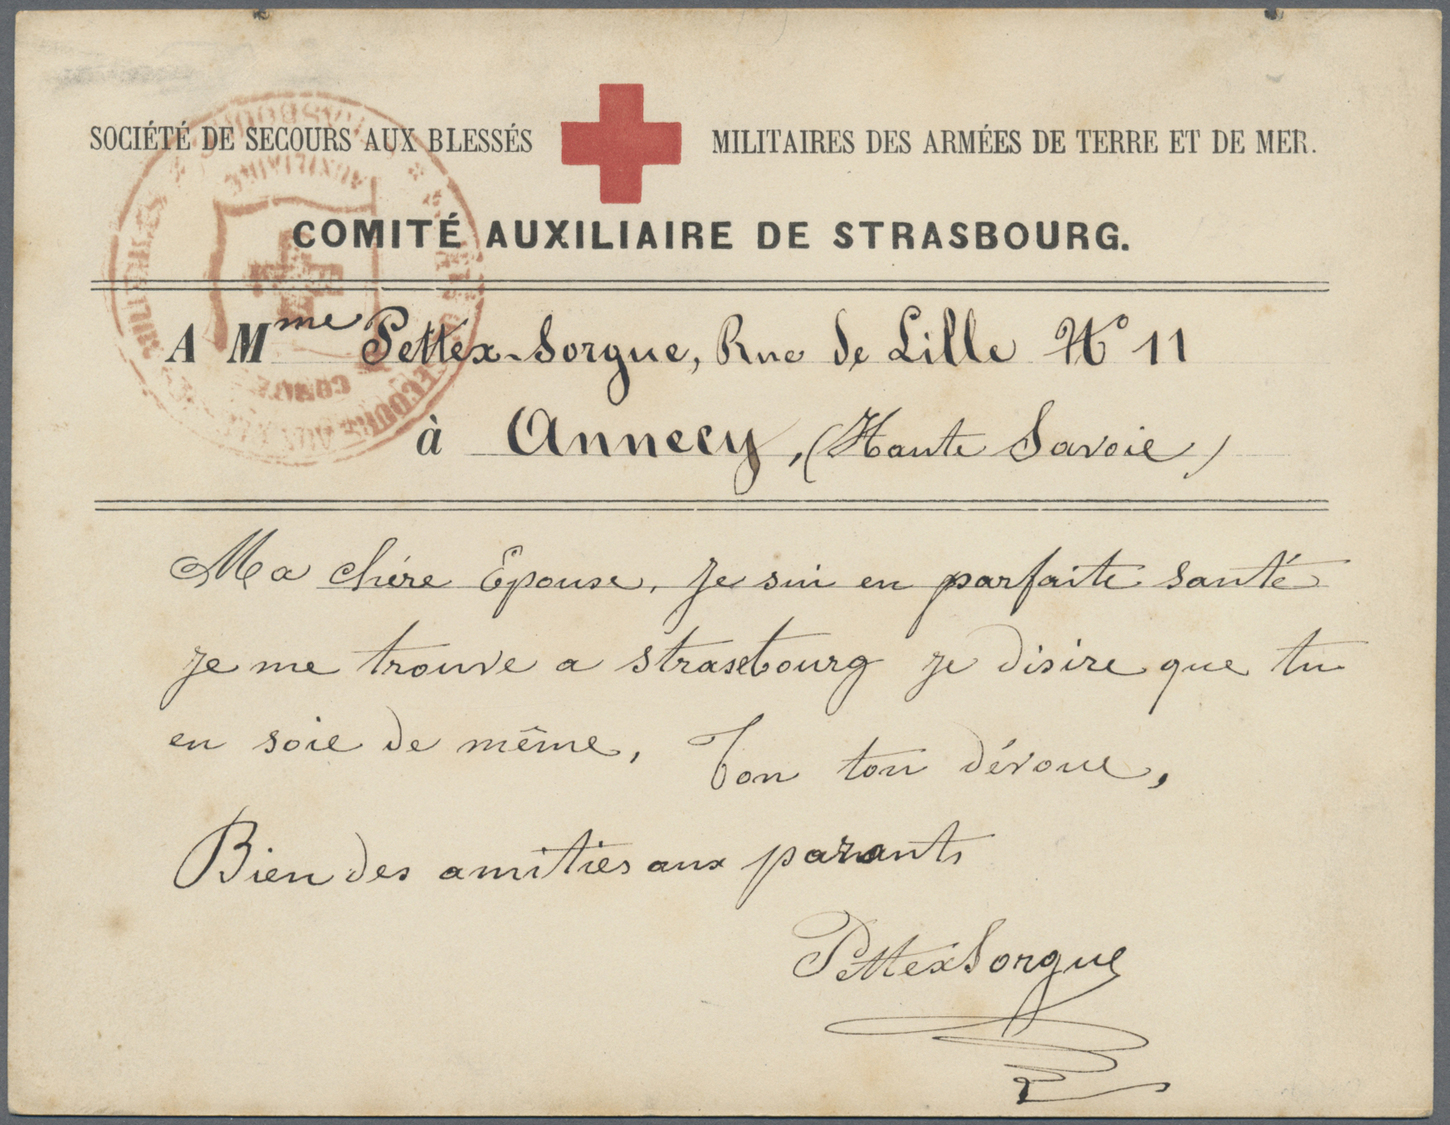 SOCIÉTÉ DE SECOURS AUX BLESSÉS MILITAIRES DES ARMÉES DE TERRE ET DE MER.
COMITÉ AUXILIAIRE DE STRASBOURG.
A Mme Pettex-Sorgue, Rue de Lille No 11
à Annecy, (Haute Savoie)
Ma chére Epouse, je sui en parfaite santé
je me trouve a strasbourg je disire que tu
en soie de même, Ton ton dévoue,
Bien des amities aux parants
Pettex Sorgue
AUXILIAIRE
MILITAIRES
SECOURS AUX